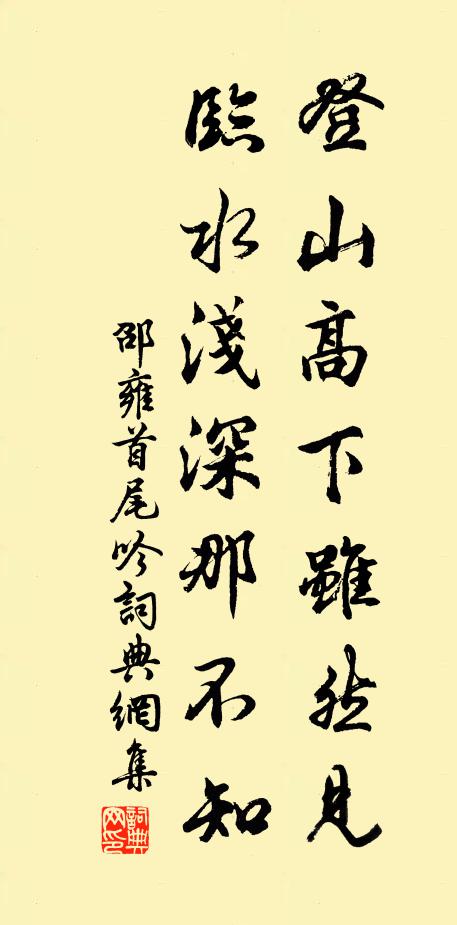 登山高下雖然見
臨水淺深那不知
邵雍首尾吟詞典網集
詞典网印